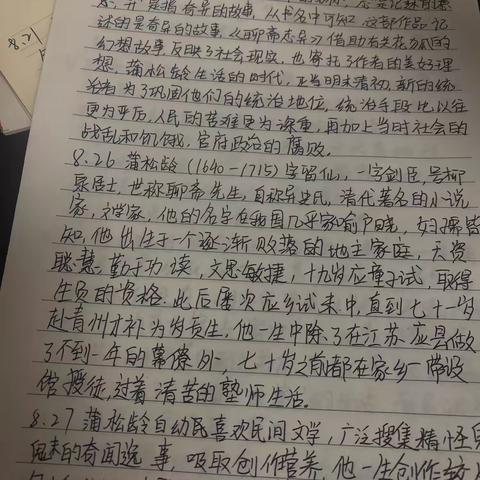 8.2
异"是指奇异的故事,从书名中可知这部作品记
述的是奇异的故事。《聊斋志异》借助有关花
幻想故事,反映了社会现实,也寄托了作者的美好理
想,蒲松龄生活的时代,正当明末清初,新的统
治者为了巩固他们的统治地位,统治手段比以往
更为严厉,人民的苦难更为深重,再加上当时社会的
战乱和饥饿,官府政治的腐败。
8.26 蒲松龄(1640-1715)字留仙,一字剑臣,号柳
泉居士,世称聊斋先生,自称异史氏,清代著名的小说
家,文学家,他的名字在我国几乎家喻户晓,妇孺皆
知,他出生于一个逐渐败落的地主家庭,天资
聪慧,勤于功读,文思敏捷,十九岁应童子试,取得
生员的资格.此后屡次应乡试未中,直到七十一岁
赴青州才补为岁贡生,他一生中除了在江苏应县做
了不到一年的幕僚外,七十岁之前都在家乡一带设
馆授徒,过着清苦的塾师生活.
8.27 蒲松龄自幼民喜欢民间文学,广泛搜集精怪
鬼魅的奇闻逸事,吸取创作营养,他一生创作